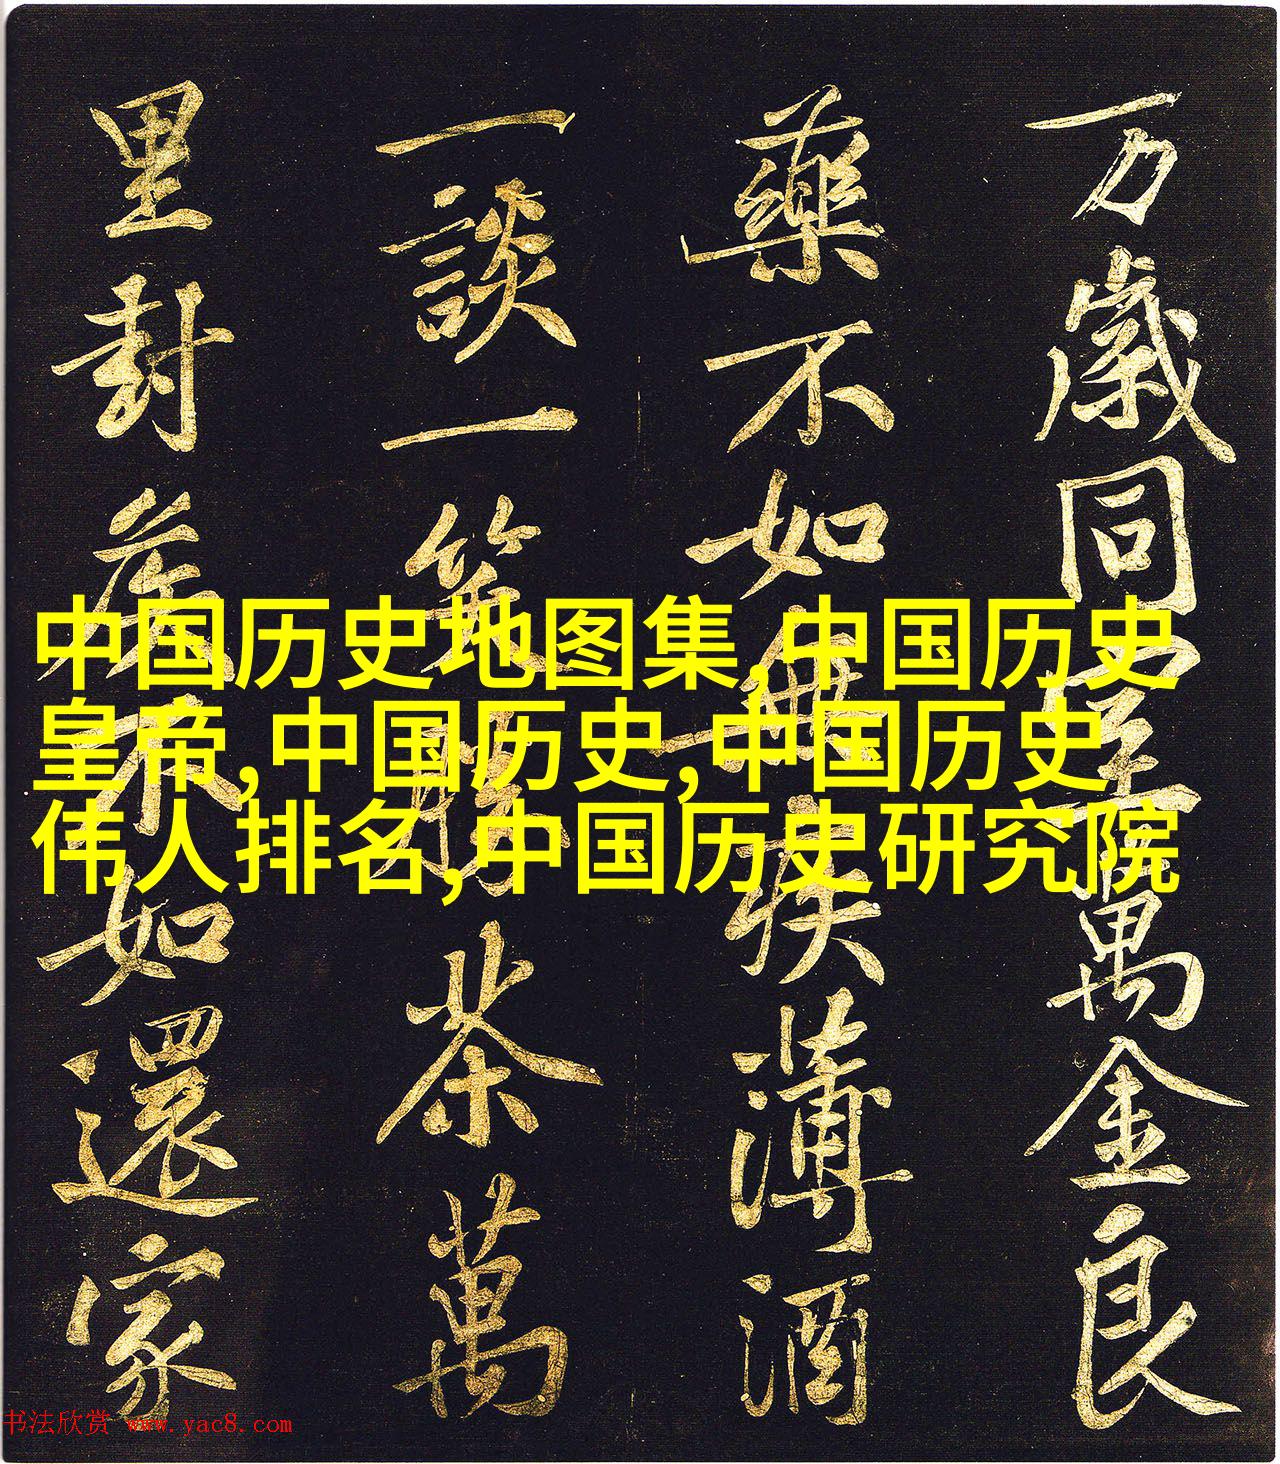 万歲同室萬金良
藥不如無疾薄酒
一談一笑勝茶萬
里封侯不如還家
中国历史地图集,中国历史
皇帝,中国历史,中国历史
伟人排名,中国历史研究院
书法欣赏 www.yac8.com